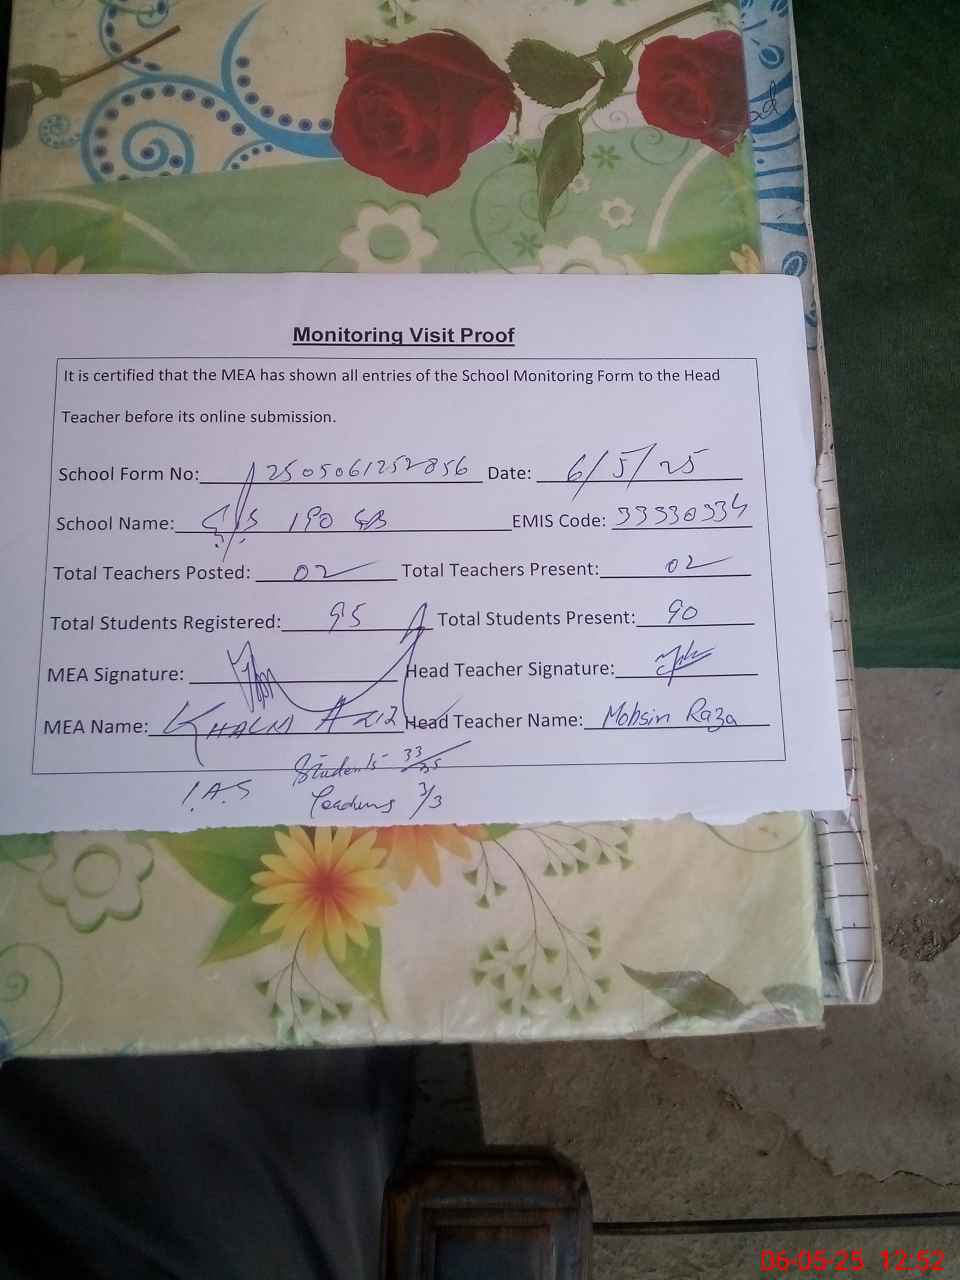 Monitoring Visit Proof
It is certified that the MEA has shown all entries of the School Monitoring Form to the Head
Teacher before its online submission.
School Form No: 2505061252856 Date: 6/5/25
School Name: 190 GB EMIS Code: 33330334
Total Teachers Posted: 02 Total Teachers Present: 02
Total Students Registered: 95 Total Students Present: 90
MEA Signature: Head Teacher Signature:
MEA Name: Aziz Head Teacher Name: Mohsin Raza
Students 33/35
I.A.S Teachers 3/3
06-05-25 12:52